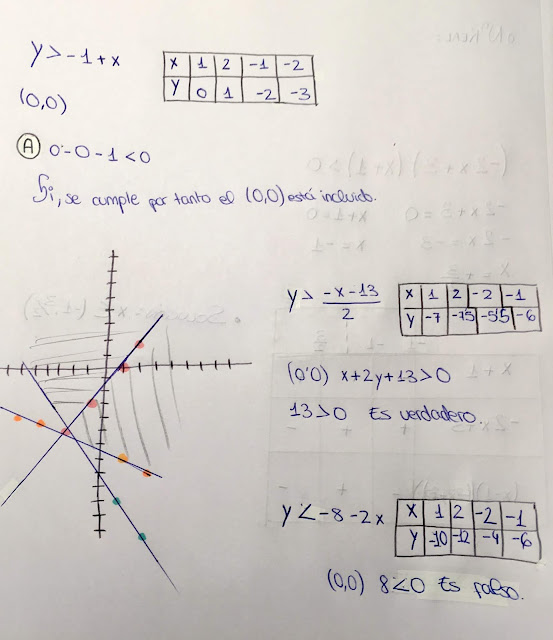 y > -1 + x
x 1 2 -1 -2
y 0 1 -2 -3
(0,0)
A 0-0-1<0
Si, se cumple por tanto el (0,0) está incluido.
y > -x-13/2
x 1 2 -2 -1
y -7 -7'5 -5'5 -6
(0,0) x+2y+13>0
13>0 Es verdadero.
y < -8-2x
x 1 2 -2 -1
y -10 -12 -4 -6
(0,0) 8<0 Es falso.